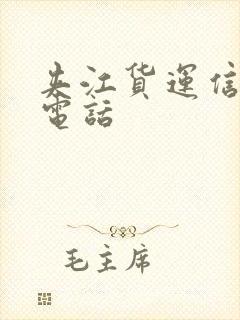 夫江货運信
電話
毛主席